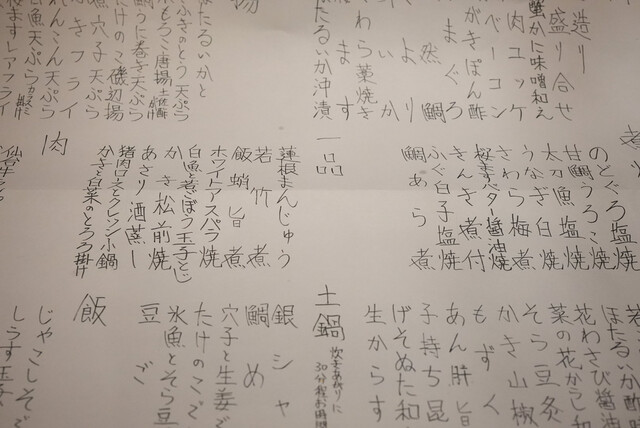 造り
盛り合せ
蟹かに味噌和え
肉ユッケ
ベーコン
がきぽん酢
まぐろ
天然鯛
より
いか
ます
さわら藁焼き
ほたるいか沖漬
揚
ほたるいかと
ふきのとう天ぷら
もろこ唐揚
鯛うに巻子天ぷら
たけのこ磯辺揚
魚穴子天ぷら
かきフライ
れんこん天ぷら
白魚天ぷら
桜ますレアフライ
煮
のどぐろ煮
甘鯛うろこ焼
太刀魚塩焼
うなぎ白焼
さわら梅煮
桜ますバター醤油焼
きんき煮付
ふぐ白子塩焼
鯛あら煮
一品
蓮根まんじゅう
若竹煮
飯蛸旨煮
ホワイトアスパラ焼
白魚と煮ごぼう玉子とじ
かき松前焼
あさり酒蒸し
猪肉ロースとクレソン小鍋
かきと白菜のとろろ掛け
肉
ほたるいか酢
花わさび醤油
菜の花からし和
そら豆炙
かき山椒
もずく
あん肝旨
子持ち昆
げそぬた和
生からす
土鍋
炊きあがりに
30分程お時間
銀シャ
鯛め
穴子と生姜で
たけのこごで
氷魚とそら豆
豆ご
飯
じゃこしそご
しらす玉子